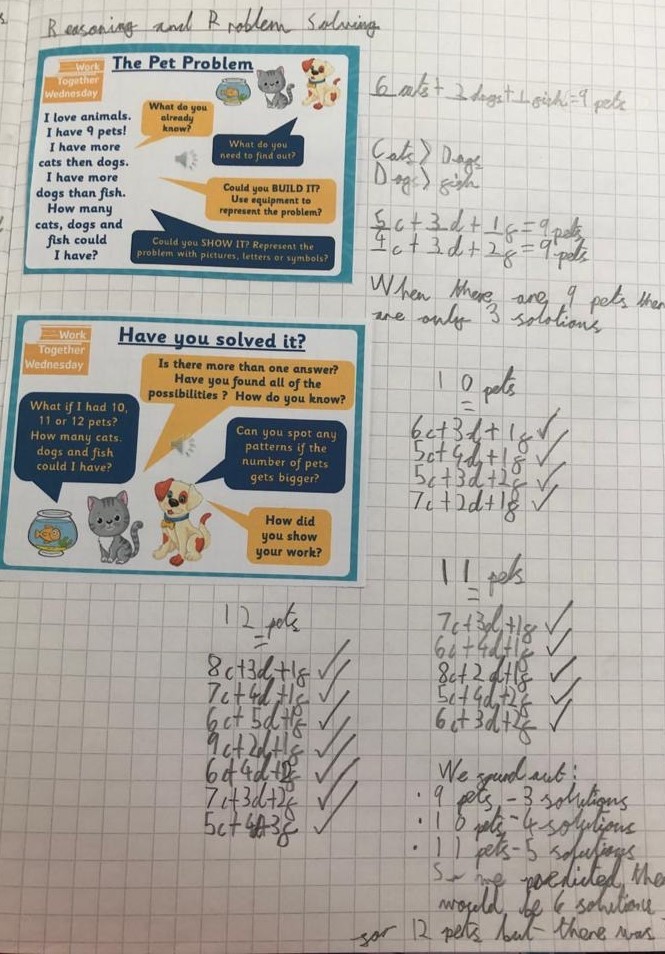 Reasoning and Problem Solving
Work
Together
Wednesday
The Pet Problem
I love animals.
I have 9 pets!
I have more
cats then dogs.
I have more
dogs than fish.
How many
cats, dogs and
fish could
I have?
What do you
already
know?
What do you
need to find out?
Could you BUILD IT?
Use equipment to
represent the problem?
Could you SHOW IT? Represent the
problem with pictures, letters or symbols?
6 cats + 2 dogs + 1 fish = 9 pets
Cats > Dogs
Dogs > fish
5c + 3d + 1f = 9 pets
4c + 3d + 2f = 9 pets
When there are 9 pets ther
are only 3 solotions
Work
Together
Wednesday
Have you solved it?
Is there more than one answer?
Have you found all of the
possibilities ? How do you know?
What if I had 10,
11 or 12 pets?
How many cats.
dogs and fish
could I have?
Can you spot any
patterns if the
number of pets
gets bigger?
How did
you show
your work?
10 pets
6c+3d+1f ✓
5c+4d+1f ✓
5c+3d+2f ✓
7c+2d+1f ✓
11 pets
7c+3d+1f ✓
6c+4d+1f ✓
8c+2d+1f ✓
5c+4d+2f ✓
6c+3d+2f ✓
12 pets
8c+3d+1f ✓
7c+4d+1f ✓
6c+5d+1f ✓
9c+2d+1f ✓
6c+4d+2f ✓
7c+3d+2f ✓
5c+4d+3f ✓
We found out:
· 9 pets - 3 solutions
· 10 pets - 4 solutions
· 11 pets - 5 solutions
So we predicted the
would be 6 solutions
for 12 pets but there was